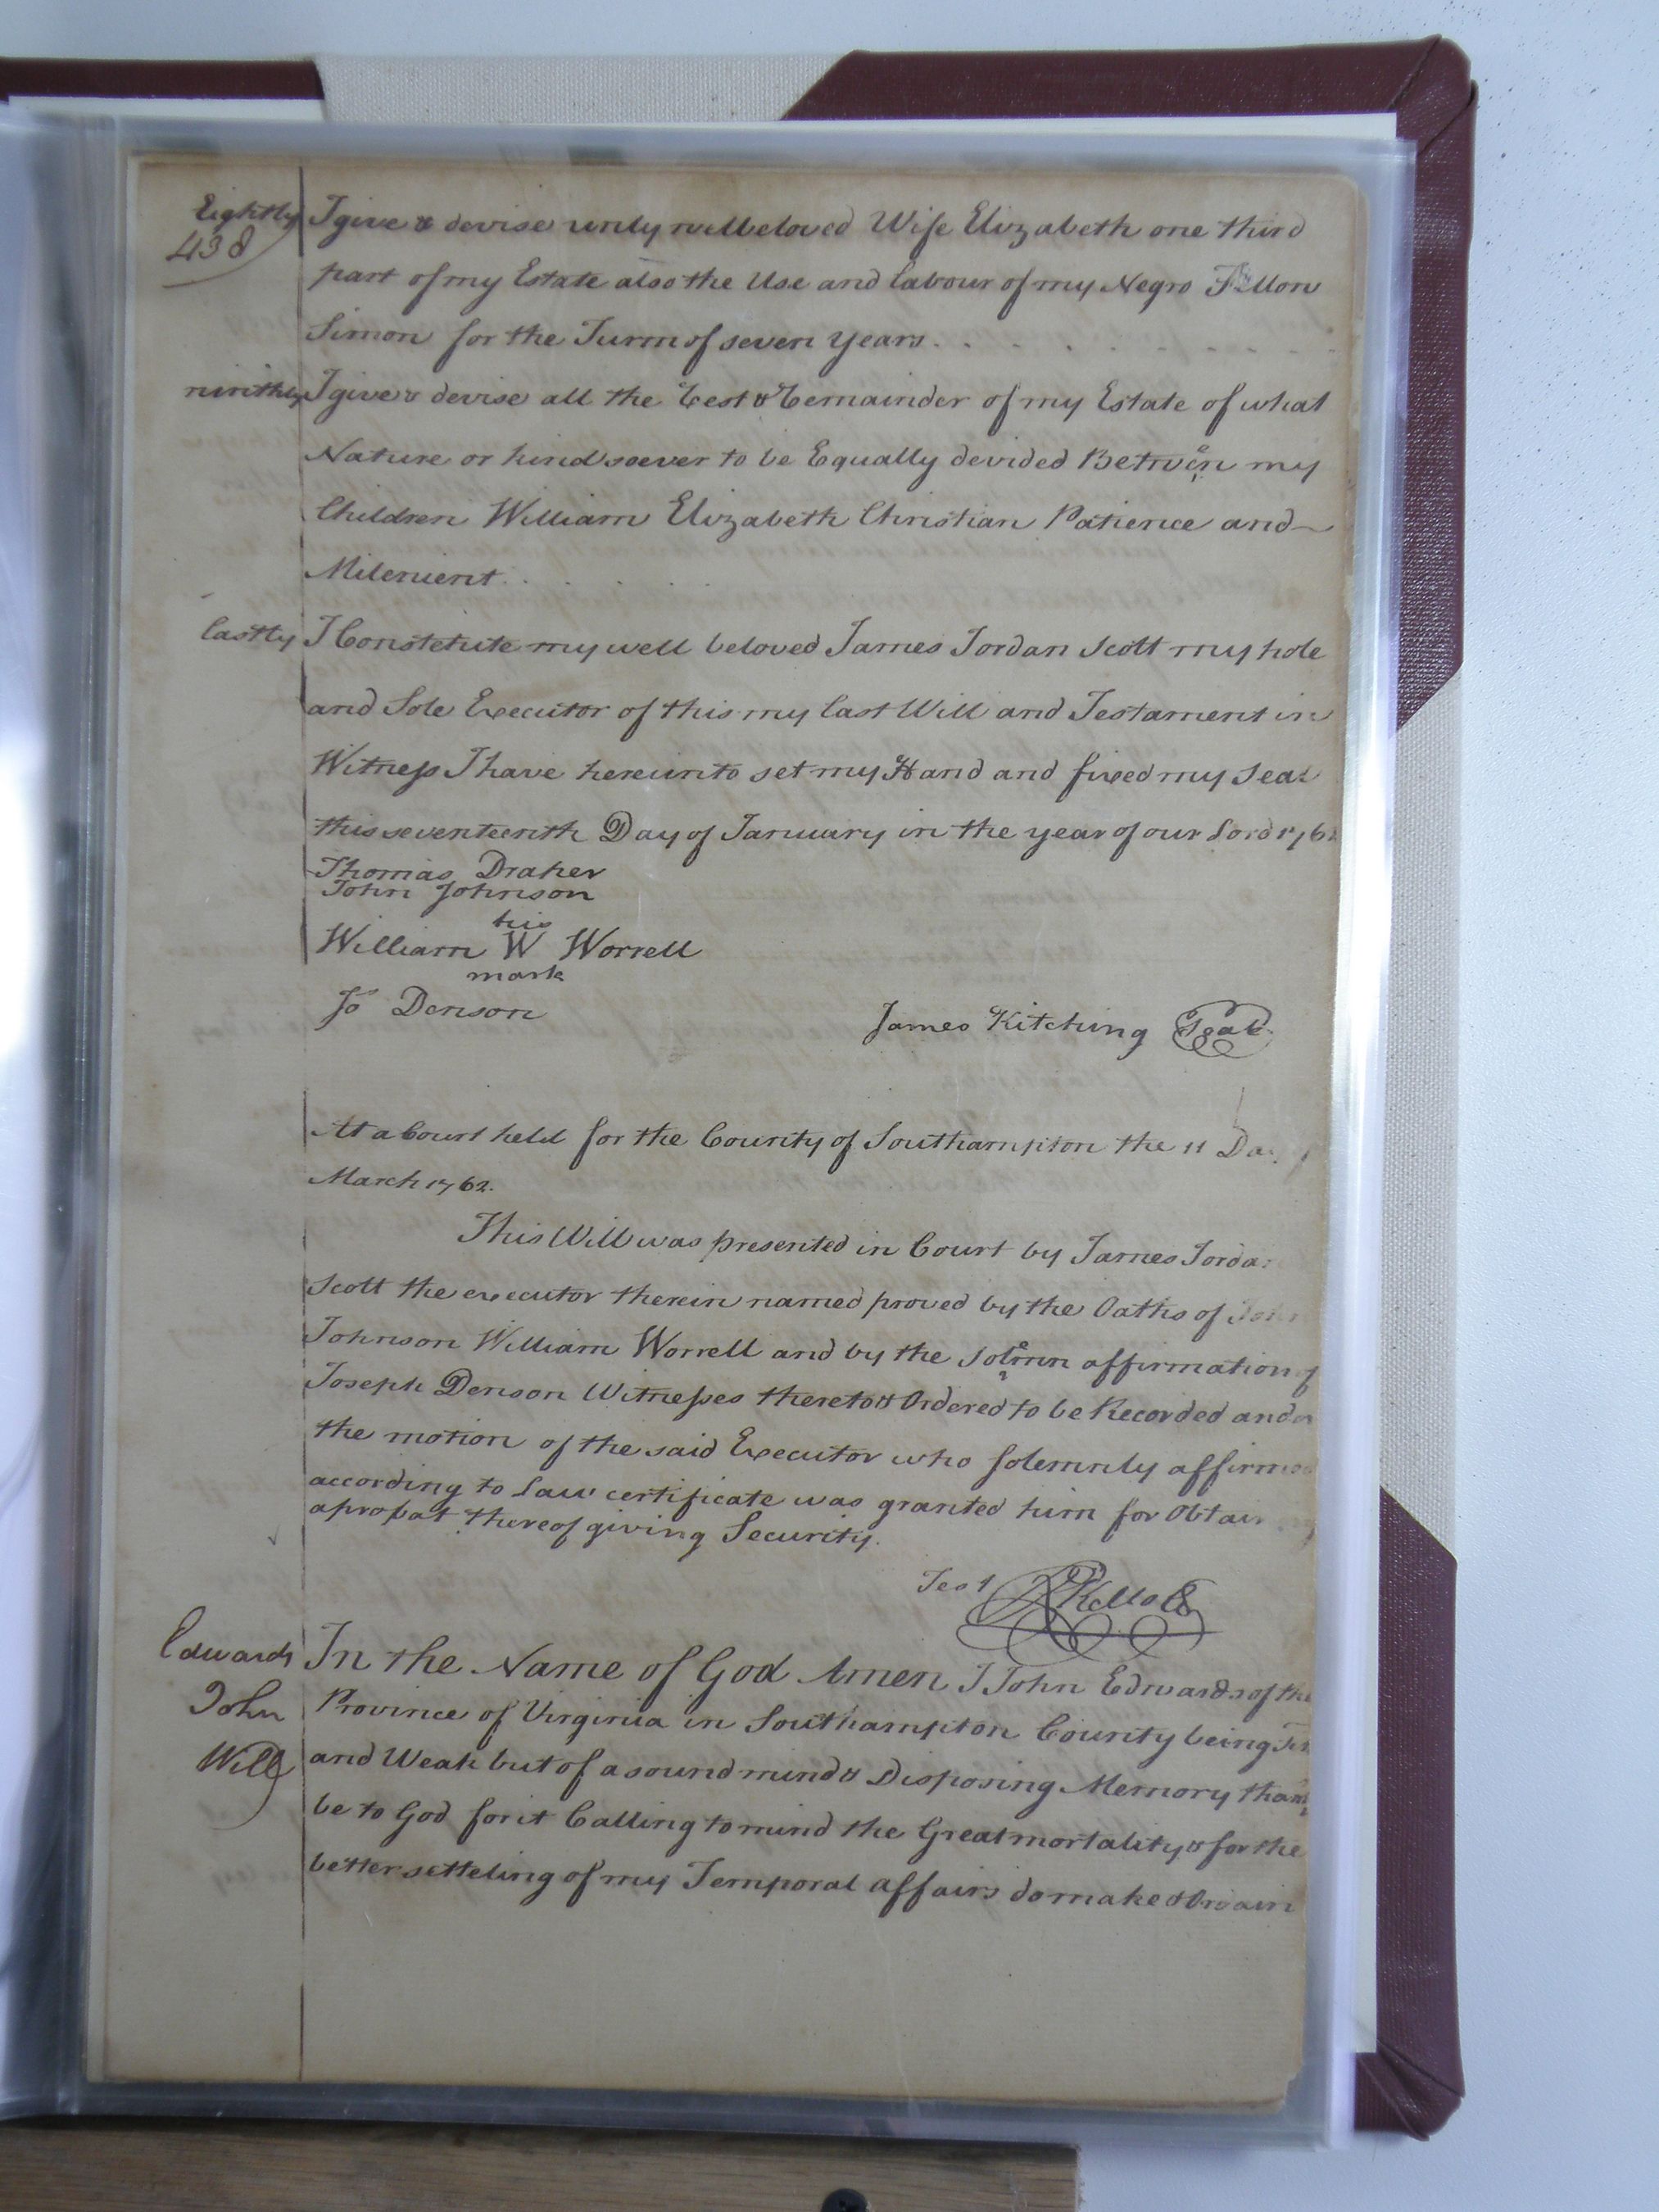 Eightly I give & devise unto my wellbeloved Wife Elizabeth one third
438
part of my Estate also the Use and labour of my Negro Fellon
Simon for the Turm of seven years
ninthly I give & devise all the Rest & Remainder of my Estate of what
Nature or kindsoever to be Equally devided Between my
Children William Elizabeth Christian Patience and
Milenient
lastly I Constetute my well beloved James Jordan Scott my hole
and Sole Executor of this my last Will and Testament in
Witness I have hereunto set my Hand and fixed my Seal
this seventeenth Day of January in the year of our Lord 1762
Thomas Draper
John Johnson
his
William W Worrell
mark
Jo Denson
James Kitching Seal
At a Court held for the County of Southampton the 11 Day
March 1762.
This Will was presented in Court by James Jordan
Scott the executor therein named proved by the Oaths of John
Johnson William Worrell and by the Solemn affirmation of
Joseph Denson Witnesses thereto & Ordered to be Recorded and on
the motion of the said Executor who solemnly affirmed
according to Law certificate was granted him for Obtaining
a probat thereof giving Security.
Test R Kello Ck
Edwards In the Name of God Amen I John Edwards of the
John Province of Virginia in Southampton County being
Will and Weak but of a sound mind & Disposing Memory thanks
be to God for it Calling to mind the Great mortality & for the
better setteling of my Temporal affairs do make & Ordain